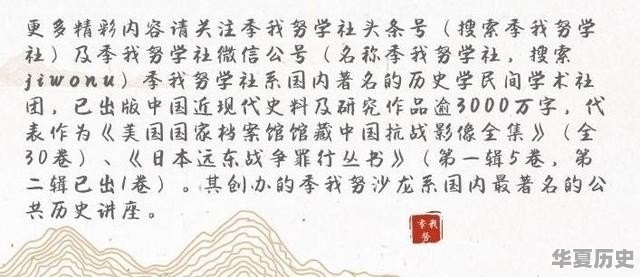 更多精彩内容请关注季我努学社头条号（搜索季我努学
社）及季我努学社微信公号（名称季我努学社，搜索
jiwonu）季我努学社系国内著名的历史学民间学术社
团，已出版中国近现代史料及研究作品逾3000万字，代
表作为《美国国家档案馆馆藏中国抗战影像全集》（全
30卷）、《日本远东战争罪行丛书》（第一辑5卷，第
二辑已出1卷）。其创办的季我努沙龙系国内最著名的公
共历史讲座。
季我
努
华夏历史